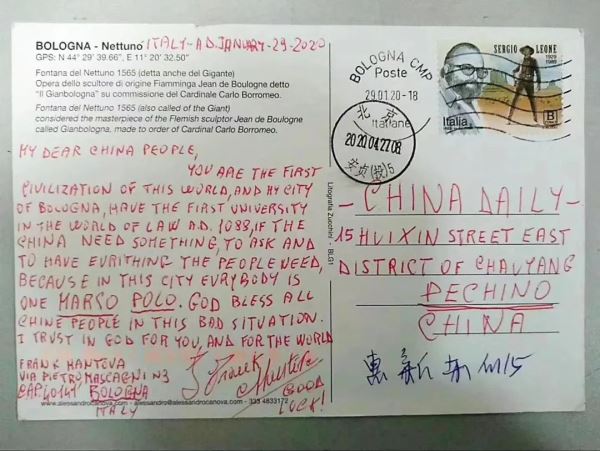 BOLOGNA - Nettuno ITALY-A.D. JANUARY-29-2020
GPS: N 44° 29' 39.66", E 11° 20' 32.50"
Fontana del Nettuno 1565 (detta anche del Gigante)
Opera dello scultore di origine Fiamminga Jean de Boulogne detto
"Il Gianbologna" su commissione del Cardinale Carlo Borromeo.
Fontana del Nettuno 1565 (also called of the Giant)
considered the masterpiece of the Flemish sculptor Jean de Boulogne
called Gianbologna, made to order of Cardinal Carlo Borromeo.
MY DEAR CHINA PEOPLE,
YOU ARE THE FIRST
CIVILIZATION OF THIS WORLD, AND MY CITY
OF BOLOGNA, HAVE THE FIRST UNIVERSITY
IN THE WORLD OF LAW A.D. 1088, IF THE
CHINA NEED SOMETHING, TO ASK AND
TO HAVE EVRITHING THE PEOPLE NEED,
BECAUSE IN THIS CITY EVRYBODY IS
ONE MARCO POLO. GOD BLESS ALL
CHINE PEOPLE IN THIS BAD SITUATION.
I TRUST IN GOD FOR YOU, AND FOR THE WORLD
FRANK MANTOVA
VIA PIETRO MASCAGNI N3
CAP. 40141 BOLOGNA
ITALY
Frank
GOOD
LUCK!
www.alessandrocanova.com - alessandro@alessandrocanova.com - 333 4833172
Litografia Zucchini - BLG1
BOLOGNA CMP
Poste
29.01.20-18
Italiane
北京
2020.04.27.08
安贞(投)5
SERGIO LEONE
1929
1989
Italia
B
- CHINA DAILY -
15 HUIXIN STREET EAST
DISTRICT OF CHAUYANG
PECHINO
CHINA
惠新东街15